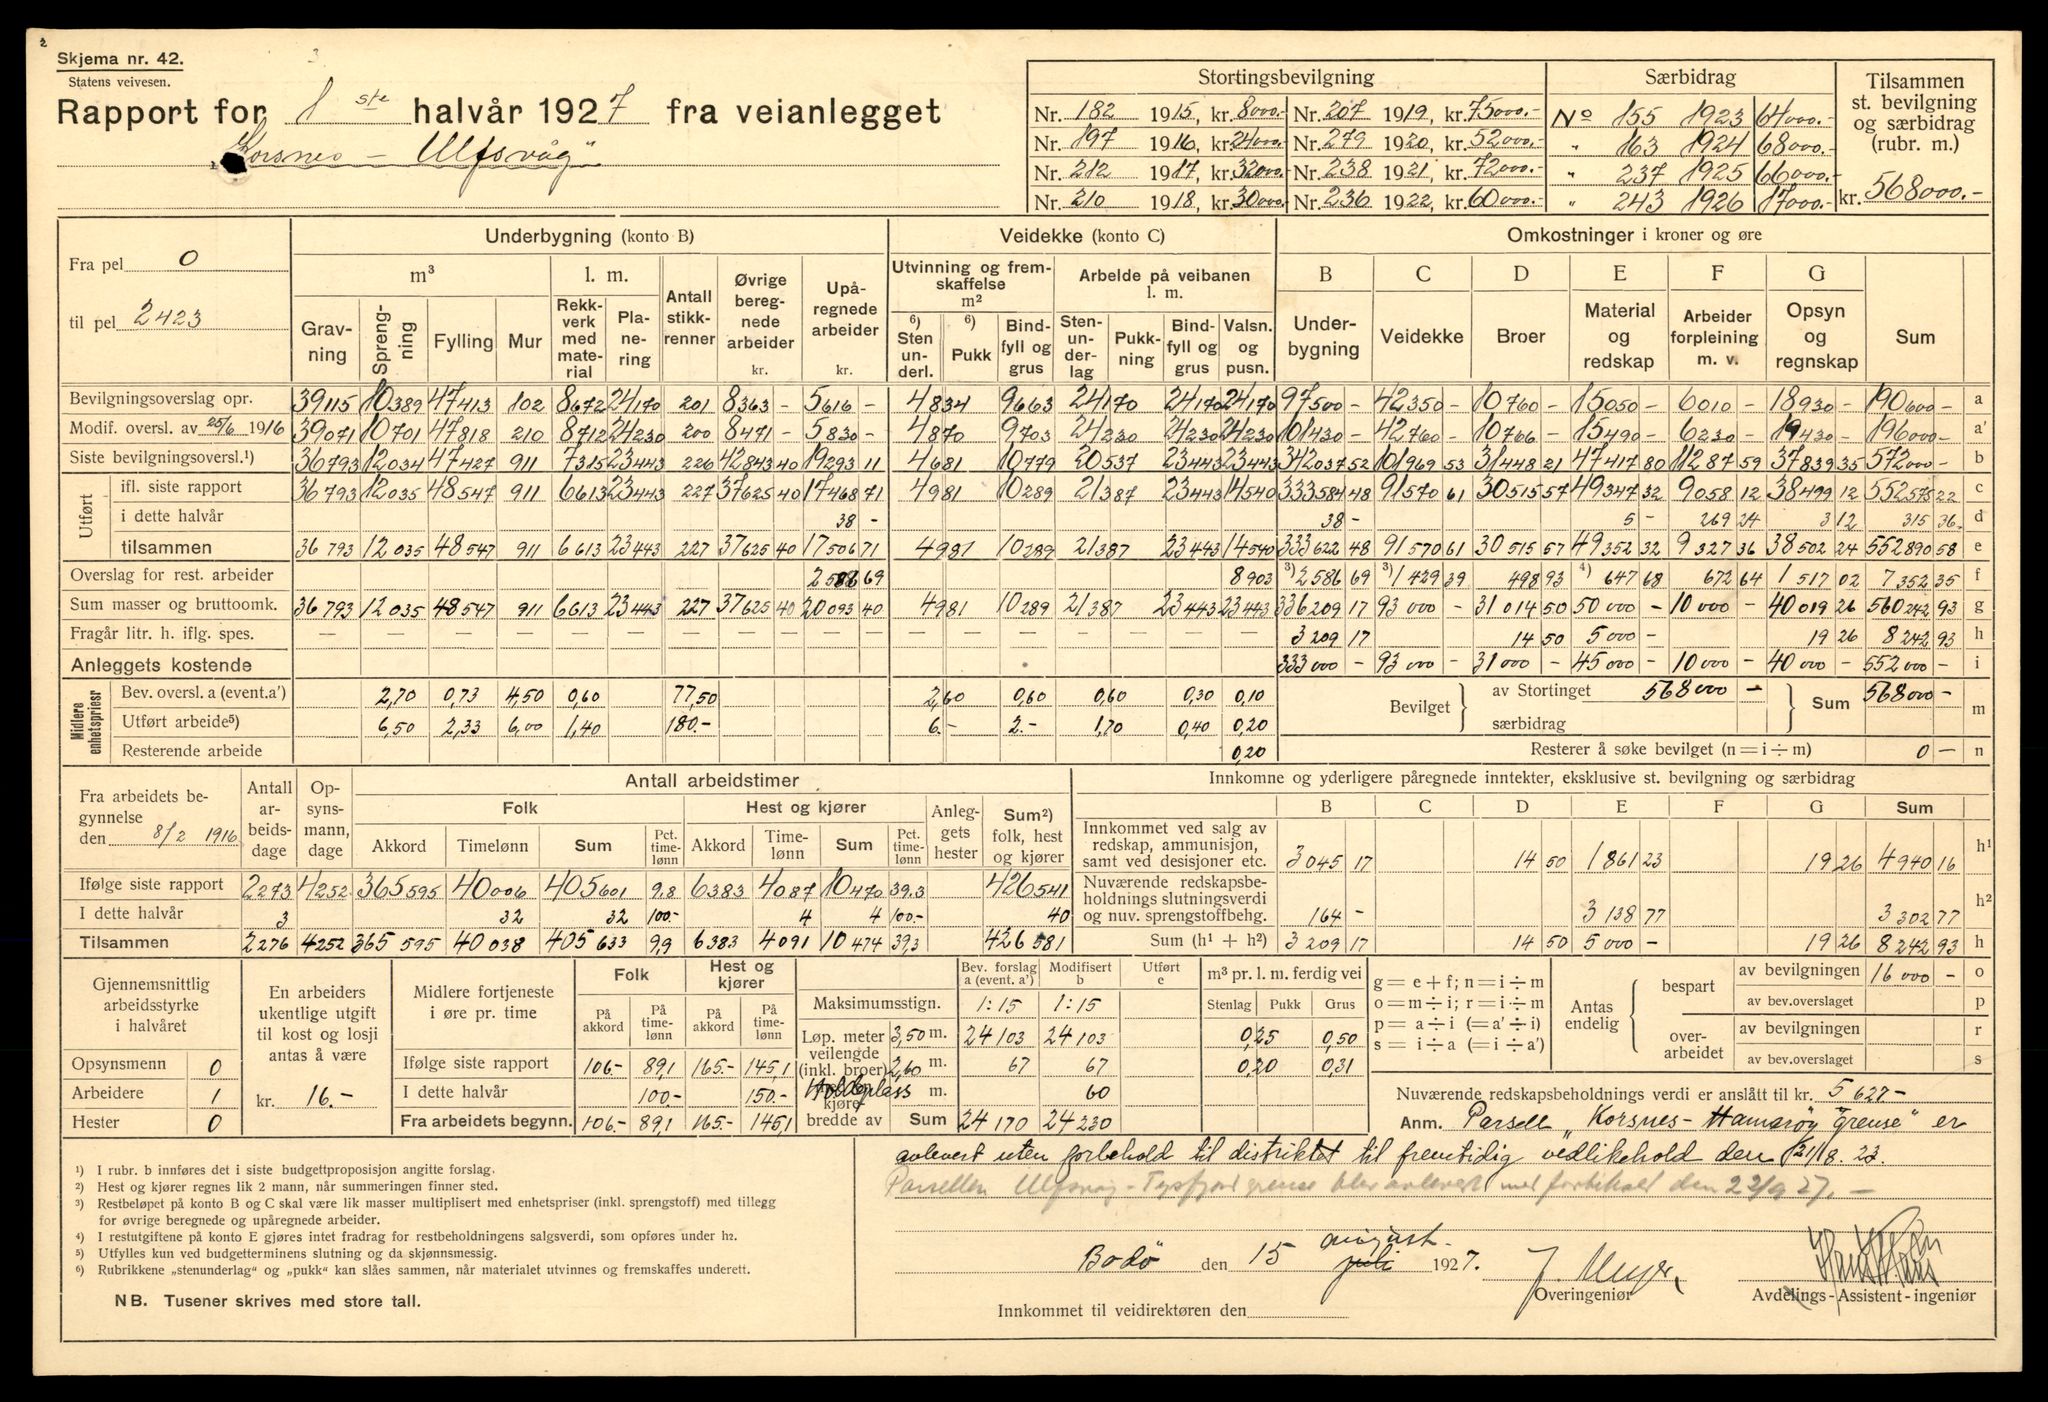 2
Skjema nr. 42.
3
Statens veivesen.
Rapport for 1ste halvår 1927 fra veianlegget
"Korsnes - Ulfsvåg"
Stortingsbevilgning | Særbidrag | Tilsammen st. bevilgning og særbidrag (rubr. m.)
Nr. 182 1915, kr. 8000.- | Nr. 207 1919, kr. 75000.- | No 155 1923 64000.-
Nr. 197 1916, kr. 24000.- | Nr. 279 1920, kr. 52000.- | " 163 1924 68000.-
Nr. 212 1917, kr. 32000.- | Nr. 238 1921, kr. 72000.- | " 237 1925 66000.-
Nr. 210 1918, kr. 30000.- | Nr. 236 1922, kr. 60000.- | " 243 1926 17000.- | kr. 568000.-
Fra pel 0
til pel 2423
Underbygning (konto B) | Veidekke (konto C) | Omkostninger i kroner og øre
m³ | l. m. | Antall stikkrenner | Øvrige beregnede arbeider kr. | Upåregnede arbeider kr. | Utvinning og fremskaffelse m² | Arbeide på veibanen l. m. | B | C | D | E | F | G
Gravning | Sprengning | Fylling | Mur | Rekkverk med material | Planering | 6) Sten underl. | 6) Pukk | Bindfyll og grus | Stenunderlag | Pukkning | Bindfyll og grus | Valsn. og pusn. | Underbygning | Veidekke | Broer | Material og redskap | Arbeider forpleining m. v. | Opsyn og regnskap | Sum
Bevilgningsoverslag opr. | 39115 | 10389 | 47413 | 102 | 8672 | 24170 | 201 | 8363 - | 5616 - | 4834 | 9663 | 24170 | 24170 | 24170 | 97500 - | 42350 - | 10760 - | 15050 - | 6010 - | 18930 - | 190600 - | a
Modif. oversl. av 25/6 1916 | 39071 | 10701 | 47818 | 210 | 8712 | 24230 | 200 | 8471 - | 5830 - | 4870 | 9703 | 24230 | 24230 | 24230 | 101430 - | 42760 - | 10766 - | 15490 - | 6230 - | 19430 - | 196000 - | a'
Siste bevilgningsoversl.¹) | 36793 | 12034 | 47427 | 911 | 7315 | 23443 | 226 | 42843 40 | 19293 11 | 4681 | 10779 | 20537 | 23443 | 23443 | 342037 52 | 101969 53 | 31448 21 | 47417 80 | 11287 59 | 37839 35 | 572000 - | b
Utført
ifl. siste rapport | 36793 | 12035 | 48547 | 911 | 6613 | 23443 | 227 | 37625 40 | 17468 71 | 4981 | 10289 | 21387 | 23443 | 14540 | 333584 48 | 91570 61 | 30515 57 | 49347 32 | 9058 12 | 38499 12 | 552575 22 | c
i dette halvår | 38 - | 38 - | 5 - | 269 24 | 3 12 | 315 36 | d
tilsammen | 36793 | 12035 | 48547 | 911 | 6613 | 23443 | 227 | 37625 40 | 17506 71 | 4981 | 10289 | 21387 | 23443 | 14540 | 333622 48 | 91570 61 | 30515 57 | 49352 32 | 9327 36 | 38502 24 | 552890 58 | e
Overslag for rest. arbeider | 2586 69 | 8903 | 3) 2586 69 | 3) 1429 39 | 498 93 | 4) 647 68 | 672 64 | 1517 02 | 7352 35 | f
Sum masser og bruttoomk. | 36793 | 12035 | 48547 | 911 | 6613 | 23443 | 227 | 37625 40 | 20093 40 | 4981 | 10289 | 21387 | 23443 | 23443 | 336209 17 | 93000 - | 31014 50 | 50000 - | 10000 - | 40019 26 | 560242 93 | g
Fragår litr. h. iflg. spes. | — | — | — | — | — | — | — | — | — | — | — | — | — | — | 3209 17 | 14 50 | 5000 - | 19 26 | 8242 93 | h
Anleggets kostende | 333000 - | 93000 - | 31000 - | 45000 - | 10000 - | 40000 - | 552000 - | i
Midlere enhetspriser
Bev. oversl. a (event. a') | 2,70 | 0,73 | 4,50 | 0,60 | 77,50 | 2,60 | 0,60 | 0,60 | 0,30 | 0,10 | Bevilget | av Stortinget 568000 - | Sum | 568000 - | m
Utført arbeide⁵) | 6,50 | 2,33 | 6,00 | 1,40 | 180.- | 6.- | 2.- | 1,70 | 0,40 | 0,20 | særbidrag
Resterende arbeide | 0,20 | Resterer å søke bevilget (n = i ÷ m) | 0 — | n
Fra arbeidets begynnelse den 8/2 1916 | Antall arbeidsdage | Opsynsmann, dage | Antall arbeidstimer
Folk | Hest og kjører | Anleggets hester | Sum²) folk, hest og kjører
Akkord | Timelønn | Sum | Pct. timelønn | Akkord | Timelønn | Sum | Pct. timelønn
Ifølge siste rapport | 2273 | 4252 | 365595 | 40006 | 405601 | 9,8 | 6383 | 4087 | 10470 | 39,3 | 426541
I dette halvår | 3 | 32 | 32 | 100.- | 4 | 4 | 100.- | 40
Tilsammen | 2276 | 4252 | 365595 | 40038 | 405633 | 9,9 | 6383 | 4091 | 10474 | 39,3 | 426581
Innkomne og yderligere påregnede inntekter, eksklusive st. bevilgning og særbidrag
B | C | D | E | F | G | Sum
Innkommet ved salg av redskap, ammunisjon, samt ved desisjoner etc. | 3045 17 | 14 50 | 1861 23 | 19 26 | 4940 16 | h¹
Nuværende redskapsbeholdnings slutningsverdi og nuv. sprengstoffbehg. | 164 - | 3138 77 | 3302 77 | h²
Sum (h¹ + h²) | 3209 17 | 14 50 | 5000 - | 19 26 | 8242 93 | h
Gjennemsnittlig arbeidsstyrke i halvåret
Opsynsmenn 0
Arbeidere 1
Hester 0
En arbeiders ukentlige utgift til kost og losji antas å være
kr. 16.-
Midlere fortjeneste i øre pr. time | Folk | Hest og kjører
På akkord | På timelønn | På akkord | På timelønn
Ifølge siste rapport | 106.- | 89,1 | 165.- | 145,1
I dette halvår | 100.- | 150.-
Fra arbeidets begynn. | 106.- | 89,1 | 165.- | 145,1
Bev. forslag a (event. a') | Modifisert b | Utført e | m³ pr. l. m. ferdig vei
Maksimumsstign. | 1:15 | 1:15 | Stenlag | Pukk | Grus
Løp. meter veilengde (inkl. broer) kjørebredde av
3,50 m. | 24103 | 24103 | 0,25 | 0,50
2,60 m. | 67 | 67 | 0,20 | 0,31
Holdeplass m. | 60
Sum | 24170 | 24230
g = e + f; n = i ÷ m
o = m ÷ i; r = i ÷ m
p = a ÷ i (= a' ÷ i)
s = i ÷ a (= i ÷ a')
Antas endelig
bespart | av bevilgningen | 16000 - | o
av bev.overslaget | p
overarbeidet | av bevilgningen | r
av bev.overslaget | s
Nuværende redskapsbeholdnings verdi er anslått til kr. 5627 -
Anm. Parsell "Korsnes - Hamarøy grense" er
avlevert uten forbehold til distriktet til fremtidig vedlikehold den 21/8. 23.
Parsellen Ulfsvåg - Tysfjord grense blev avlevert med forbehold den 22/9 27. -
¹) I rubr. b innføres det i siste budgettproposisjon angitte forslag.
²) Hest og kjører regnes lik 2 mann, når summeringen finner sted.
³) Restbeløpet på konto B og C skal være lik masser multiplisert med enhetspriser (inkl. sprengstoff) med tillegg
for øvrige beregnede og upåregnede arbeider.
⁴) I restutgiftene på konto E gjøres intet fradrag for restbeholdningens salgsverdi, som opføres under h₂.
⁵) Utfylles kun ved budgetterminens slutning og da skjønnsmessig.
⁶) Rubrikkene „stenunderlag" og „pukk" kan slåes sammen, når materialet utvinnes og fremskaffes underett.
NB. Tusener skrives med store tall.
august
Bodö den 15 juli 1927.
J. Meyer,
Overingeniør
Avdelings-Assistent-ingeniør
Innkommet til veidirektøren den